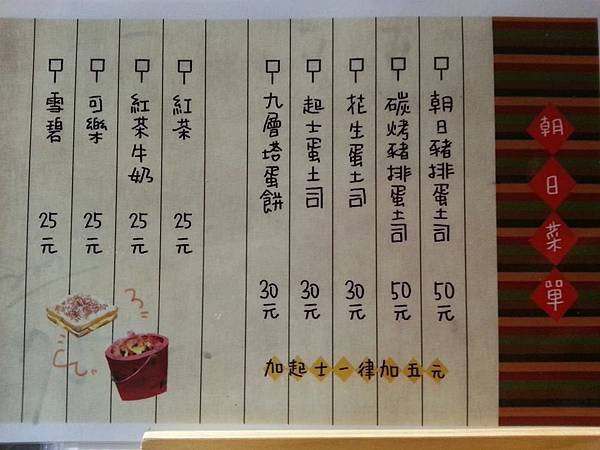 朝日菜單
朝日豬排蛋土司 50元
碳烤豬排蛋土司 50元
花生蛋土司 30元
起士蛋土司 30元
九層塔蛋餅 30元
紅茶 25元
紅茶牛奶 25元
可樂 25元
雪碧 25元
加起士一律加五元